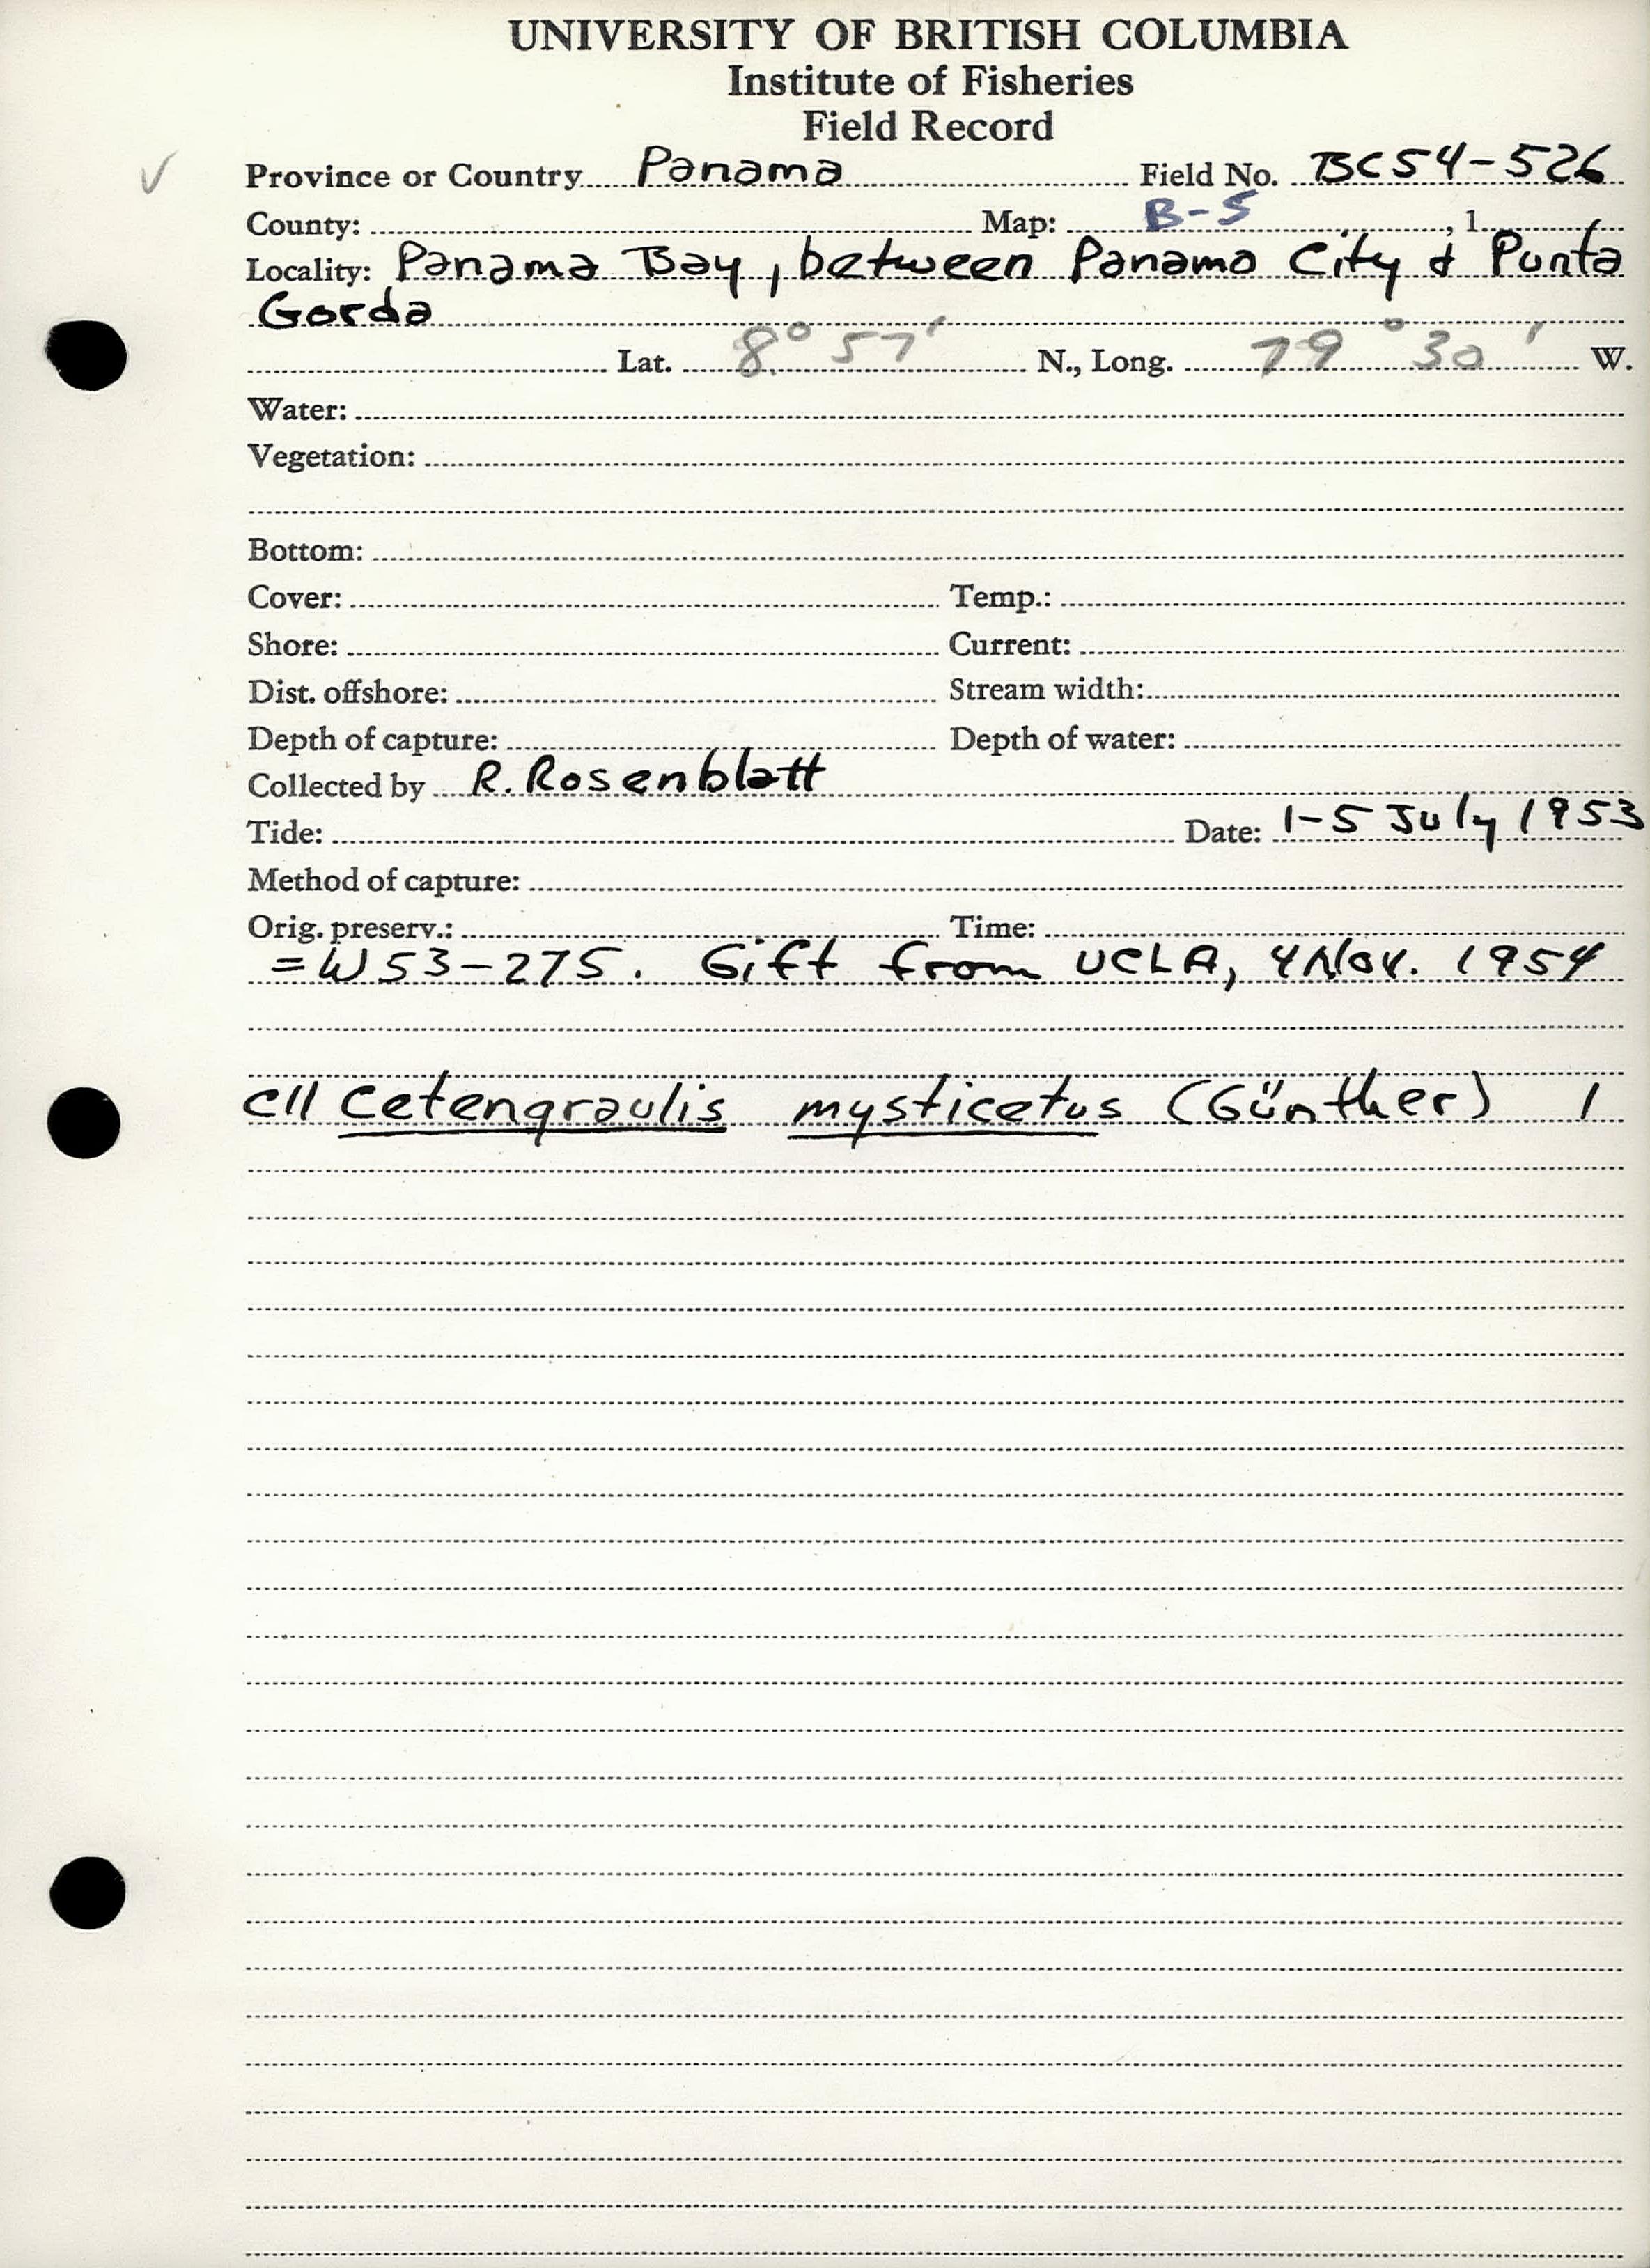 UNIVERSITY OF BRITISH COLUMBIA
Institute of Fisheries
Field Record
✓ Province or Country Panama Field No. BC54-526
County: Map: B-5, 1
Locality: Panama Bay, between Panama City & Punta
Gorda
Lat. 8° 57' N., Long. 79° 30' W.
Water:
Vegetation:
Bottom:
Cover: Temp.:
Shore: Current:
Dist. offshore: Stream width:
Depth of capture: Depth of water:
Collected by R. Rosenblatt
Tide: Date: 1-5 July 1953
Method of capture:
Orig. preserv.: Time:
= W53-275. Gift from UCLA, 4 Nov. 1954
C11 Cetengraulis mysticetus (Günther) 1